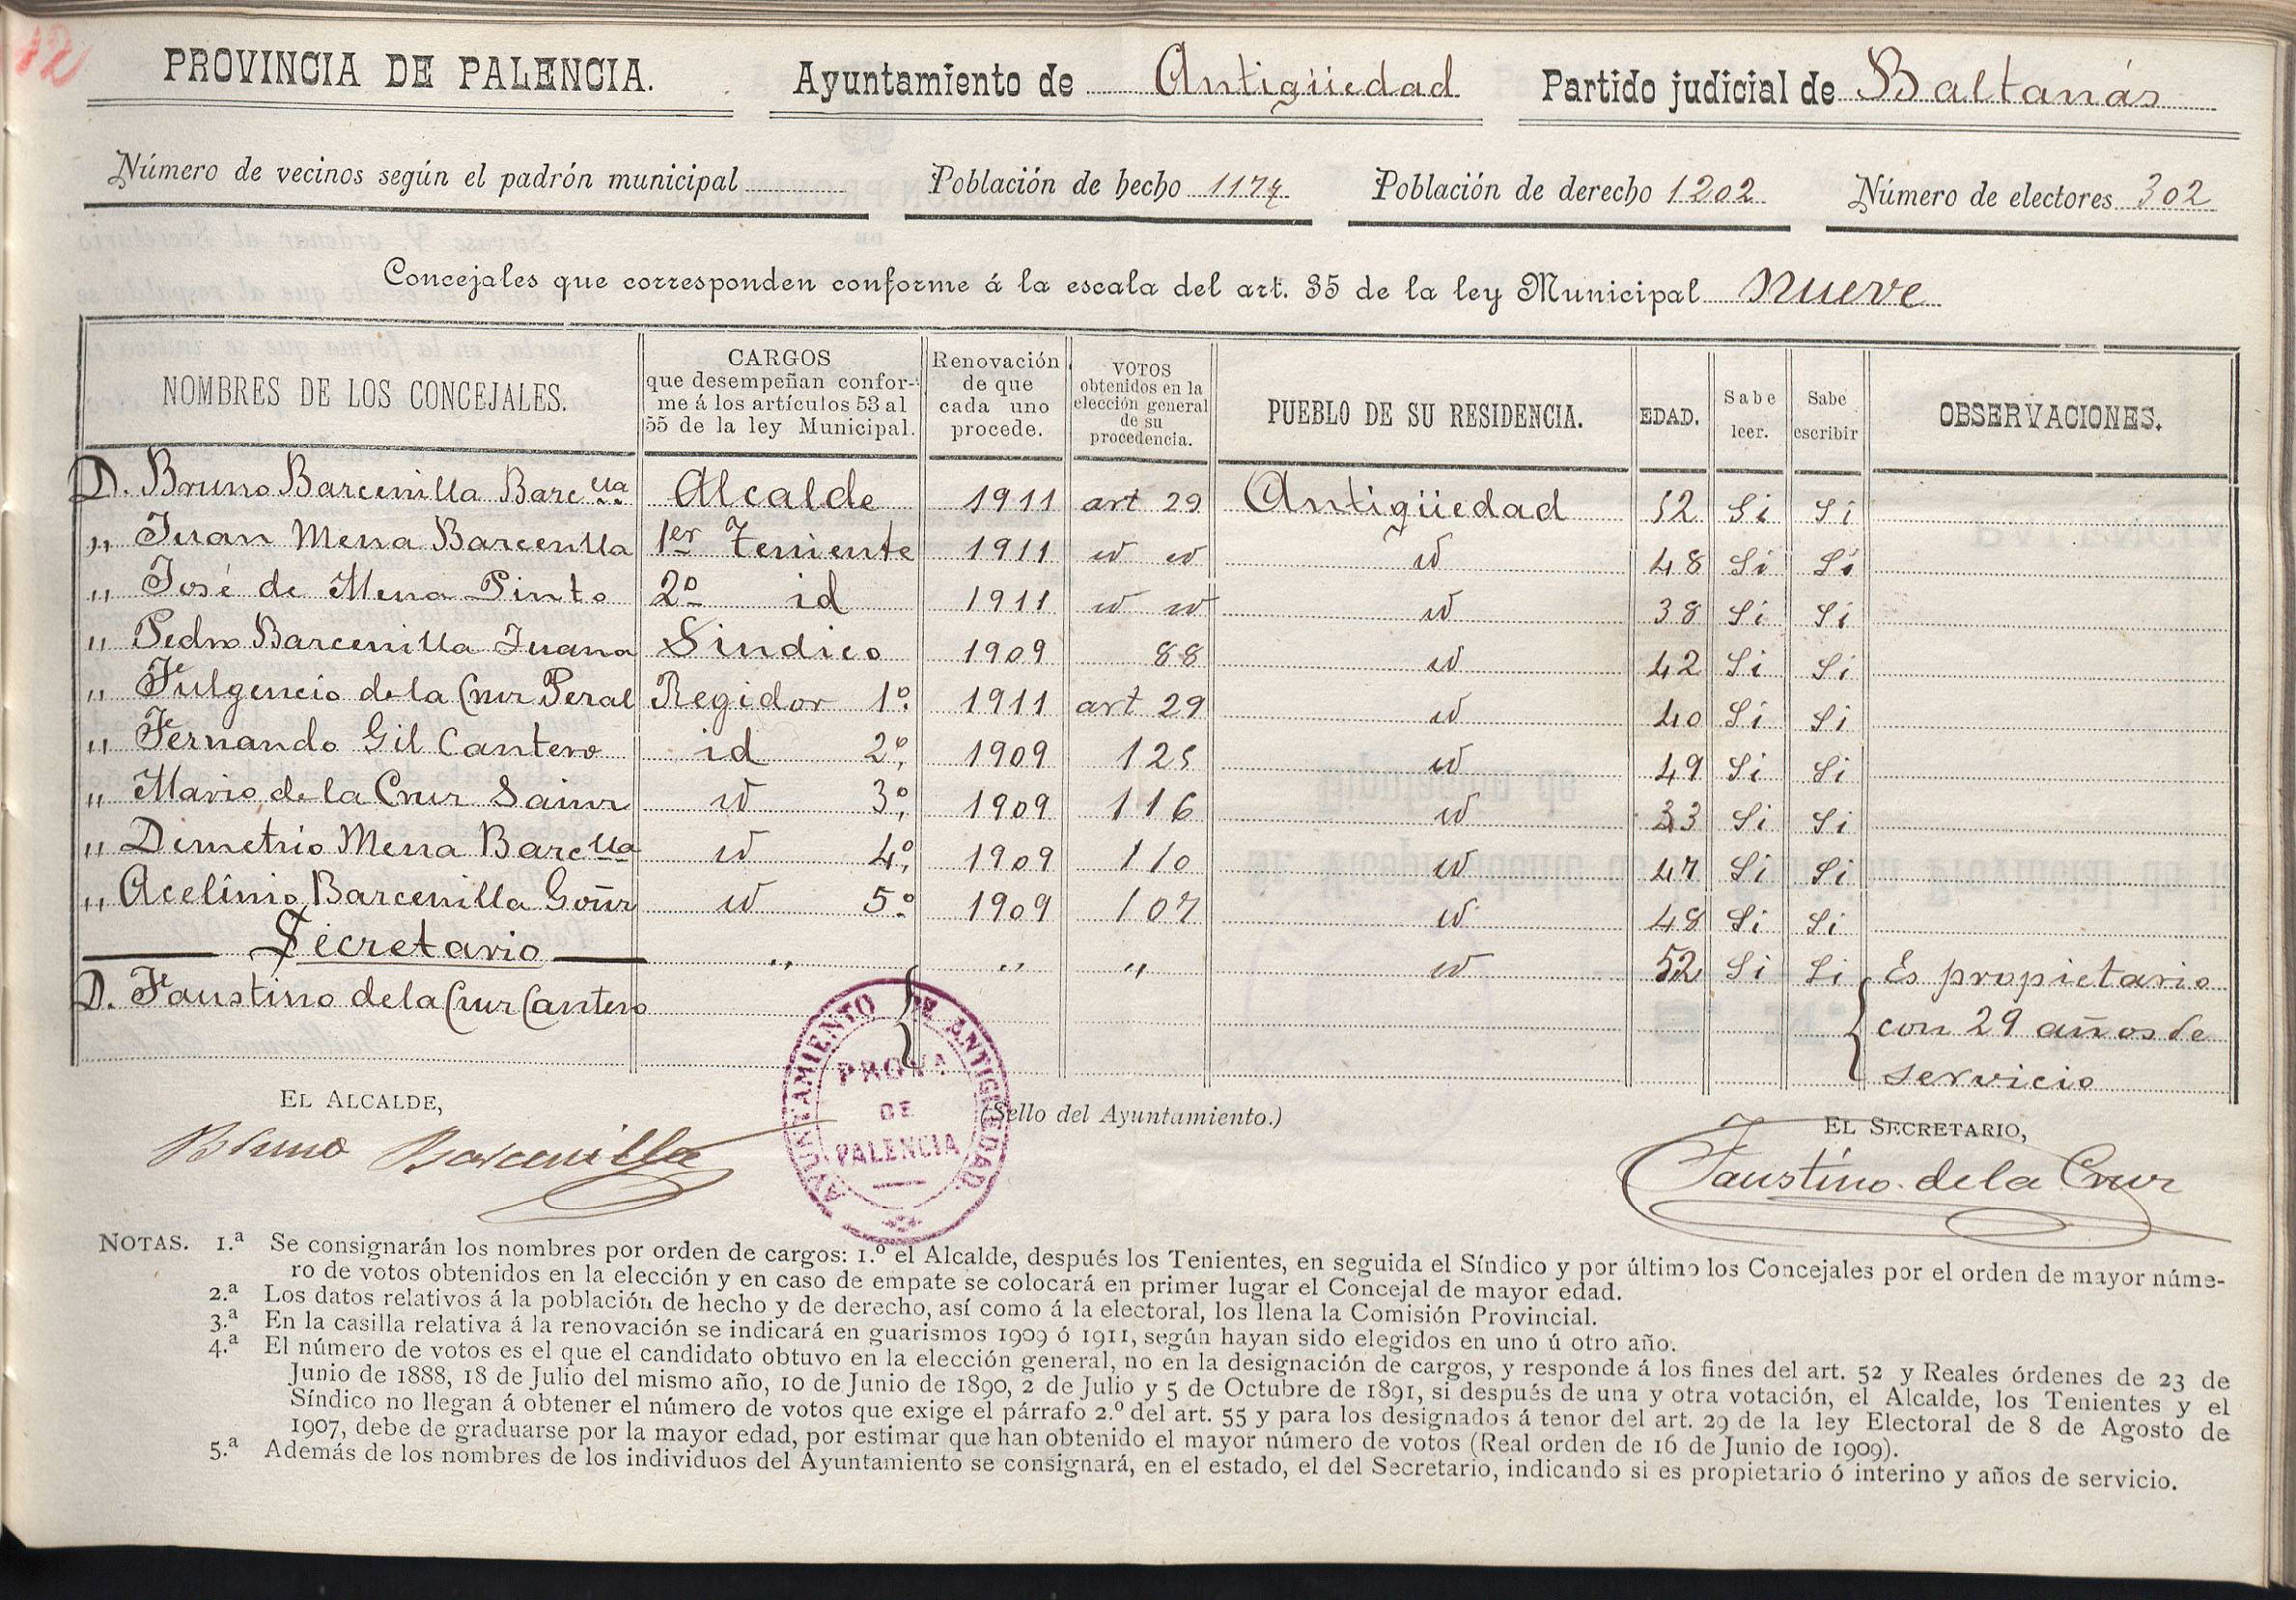 12
PROVINCIA DE PALENCIA. Ayuntamiento de Antigüedad Partido judicial de Baltanás
Número de vecinos según el padrón municipal Población de hecho 1174 Población de derecho 1202 Número de electores 302
Concejales que corresponden conforme á la escala del art. 35 de la ley Municipal nueve
NOMBRES DE LOS CONCEJALES. CARGOS que desempeñan conforme á los artículos 53 al 55 de la ley Municipal. Renovación de que cada uno procede. VOTOS obtenidos en la elección general de su procedencia. PUEBLO DE SU RESIDENCIA. EDAD. Sabe leer. Sabe escribir OBSERVACIONES.
D. Bruno Barcenilla Barclla Alcalde 1911 art 29 Antigüedad 52 Si Si
„ Juan Mena Barcenilla 1er Teniente 1911 id id id 48 Si Si
„ José de Mena Pinto 2º id 1911 id id id 38 Si Si
„ Pedro Barcenilla Juana Sindico 1909 88 id 42 Si Si
„ Fulgencio de la Cruz Peral Regidor 1º 1911 art 29 id 40 Si Si
„ Fernando Gil Cantero id 2º 1909 125 id 49 Si Si
„ Mario de la Cruz Sainz id 3º 1909 116 id 33 Si Si
„ Demetrio Mena Barclla id 4º 1909 110 id 47 Si Si
„ Acelinio Barcenilla Goñz id 5º 1909 107 id 48 Si Si
Secretario „ „ „ id 52 Si Si Es propietario
D. Faustino de la Cruz Cantero con 29 años de
servicio
EL ALCALDE, (Sello del Ayuntamiento.) EL SECRETARIO,
Bruno Barcenilla
AYUNTAMIENTO DE ANTIGÜEDAD
PROVA
DE
PALENCIA
Faustino de la Cruz
NOTAS. 1.ª Se consignarán los nombres por orden de cargos: 1.º el Alcalde, después los Tenientes, en seguida el Síndico y por último los Concejales por el orden de mayor núme-
ro de votos obtenidos en la elección y en caso de empate se colocará en primer lugar el Concejal de mayor edad.
2.ª Los datos relativos á la población de hecho y de derecho, así como á la electoral, los llena la Comisión Provincial.
3.ª En la casilla relativa á la renovación se indicará en guarismos 1909 ó 1911, según hayan sido elegidos en uno ú otro año.
4.ª El número de votos es el que el candidato obtuvo en la elección general, no en la designación de cargos, y responde á los fines del art. 52 y Reales órdenes de 23 de
Junio de 1888, 18 de Julio del mismo año, 10 de Junio de 1890, 2 de Julio y 5 de Octubre de 1891, si después de una y otra votación, el Alcalde, los Tenientes y el
Síndico no llegan á obtener el número de votos que exige el párrafo 2.º del art. 55 y para los designados á tenor del art. 29 de la ley Electoral de 8 de Agosto de
1907, debe de graduarse por la mayor edad, por estimar que han obtenido el mayor número de votos (Real orden de 16 de Junio de 1909).
5.ª Además de los nombres de los individuos del Ayuntamiento se consignará, en el estado, el del Secretario, indicando si es propietario ó interino y años de servicio.